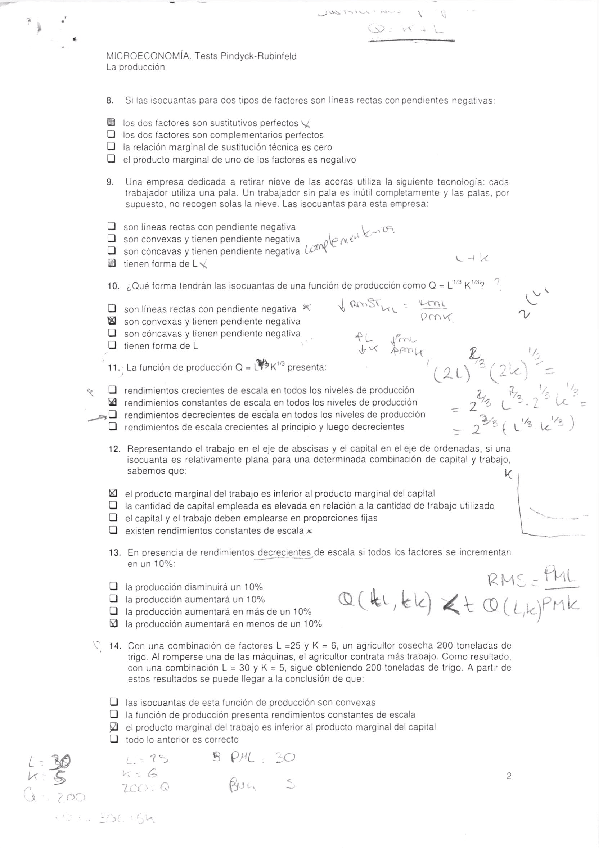 Q = K + L
MICROECONOMÍA. Tests Pindyck-Rubinfeld
La producción
8. Si las isocuantas para dos tipos de factores son líneas rectas con pendientes negativas:
los dos factores son sustitutivos perfectos
los dos factores son complementarios perfectos
la relación marginal de sustitución técnica es cero
el producto marginal de uno de los factores es negativo
9. Una empresa dedicada a retirar nieve de las aceras utiliza la siguiente tecnología: cada
trabajador utiliza una pala. Un trabajador sin pala es inútil completamente y las palas, por
supuesto, no recogen solas la nieve. Las isocuantas para esta empresa:
son líneas rectas con pendiente negativa
son convexas y tienen pendiente negativa
son cóncavas y tienen pendiente negativa complementarios
tienen forma de L
L + K
10. ¿Qué forma tendrán las isocuantas de una función de producción como Q = L^1/3 K^1/3?
son líneas rectas con pendiente negativa
son convexas y tienen pendiente negativa
son cóncavas y tienen pendiente negativa
tienen forma de L
11. La función de producción Q = L K^1/3 presenta:
(2L) (2K)^1/3 =
rendimientos crecientes de escala en todos los niveles de producción
rendimientos constantes de escala en todos los niveles de producción
rendimientos decrecientes de escala en todos los niveles de producción
rendimientos de escala crecientes al principio y luego decrecientes
12. Representando el trabajo en el eje de abscisas y el capital en el eje de ordenadas, si una
isocuanta es relativamente plana para una determinada combinación de capital y trabajo,
sabemos que:
K
el producto marginal del trabajo es inferior al producto marginal del capital
la cantidad de capital empleada es elevada en relación a la cantidad de trabajo utilizado
el capital y el trabajo deben emplearse en proporciones fijas
existen rendimientos constantes de escala
13. En presencia de rendimientos decrecientes de escala si todos los factores se incrementan
en un 10%:
RMS = PML
PMK
la producción disminuirá un 10%
la producción aumentará un 10%
la producción aumentará en más de un 10%
la producción aumentará en menos de un 10%
Q(tL, tK) < t Q(L,K)
14. Con una combinación de factores L =25 y K = 6, un agricultor cosecha 200 toneladas de
trigo. Al romperse una de las máquinas, el agricultor contrata más trabajo. Como resultado,
con una combinación L = 30 y K = 5, sigue obteniendo 200 toneladas de trigo. A partir de
estos resultados se puede llegar a la conclusión de que:
las isocuantas de esta función de producción son convexas
la función de producción presenta rendimientos constantes de escala
el producto marginal del trabajo es inferior al producto marginal del capital
todo lo anterior es correcto
L = 30
K = 5
Q = 200
K = 6
200 = Q
2